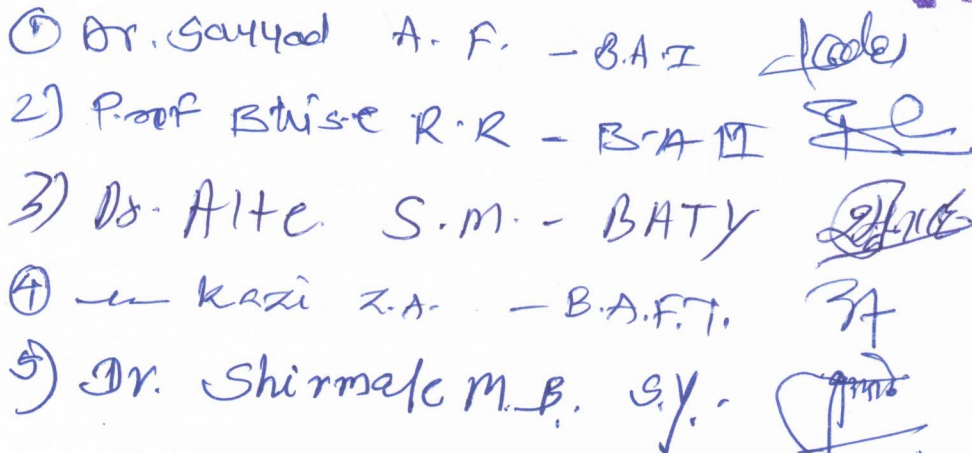 ① Dr. Sayyad A. F. - B.A.I
2) Prof Bhise R.R - B-A II
3) Dr. Alte. S.M. - BATY
④ Kazi Z.A. - B.A.F.T.
5) Dr. Shirmale M.B. S.Y.-